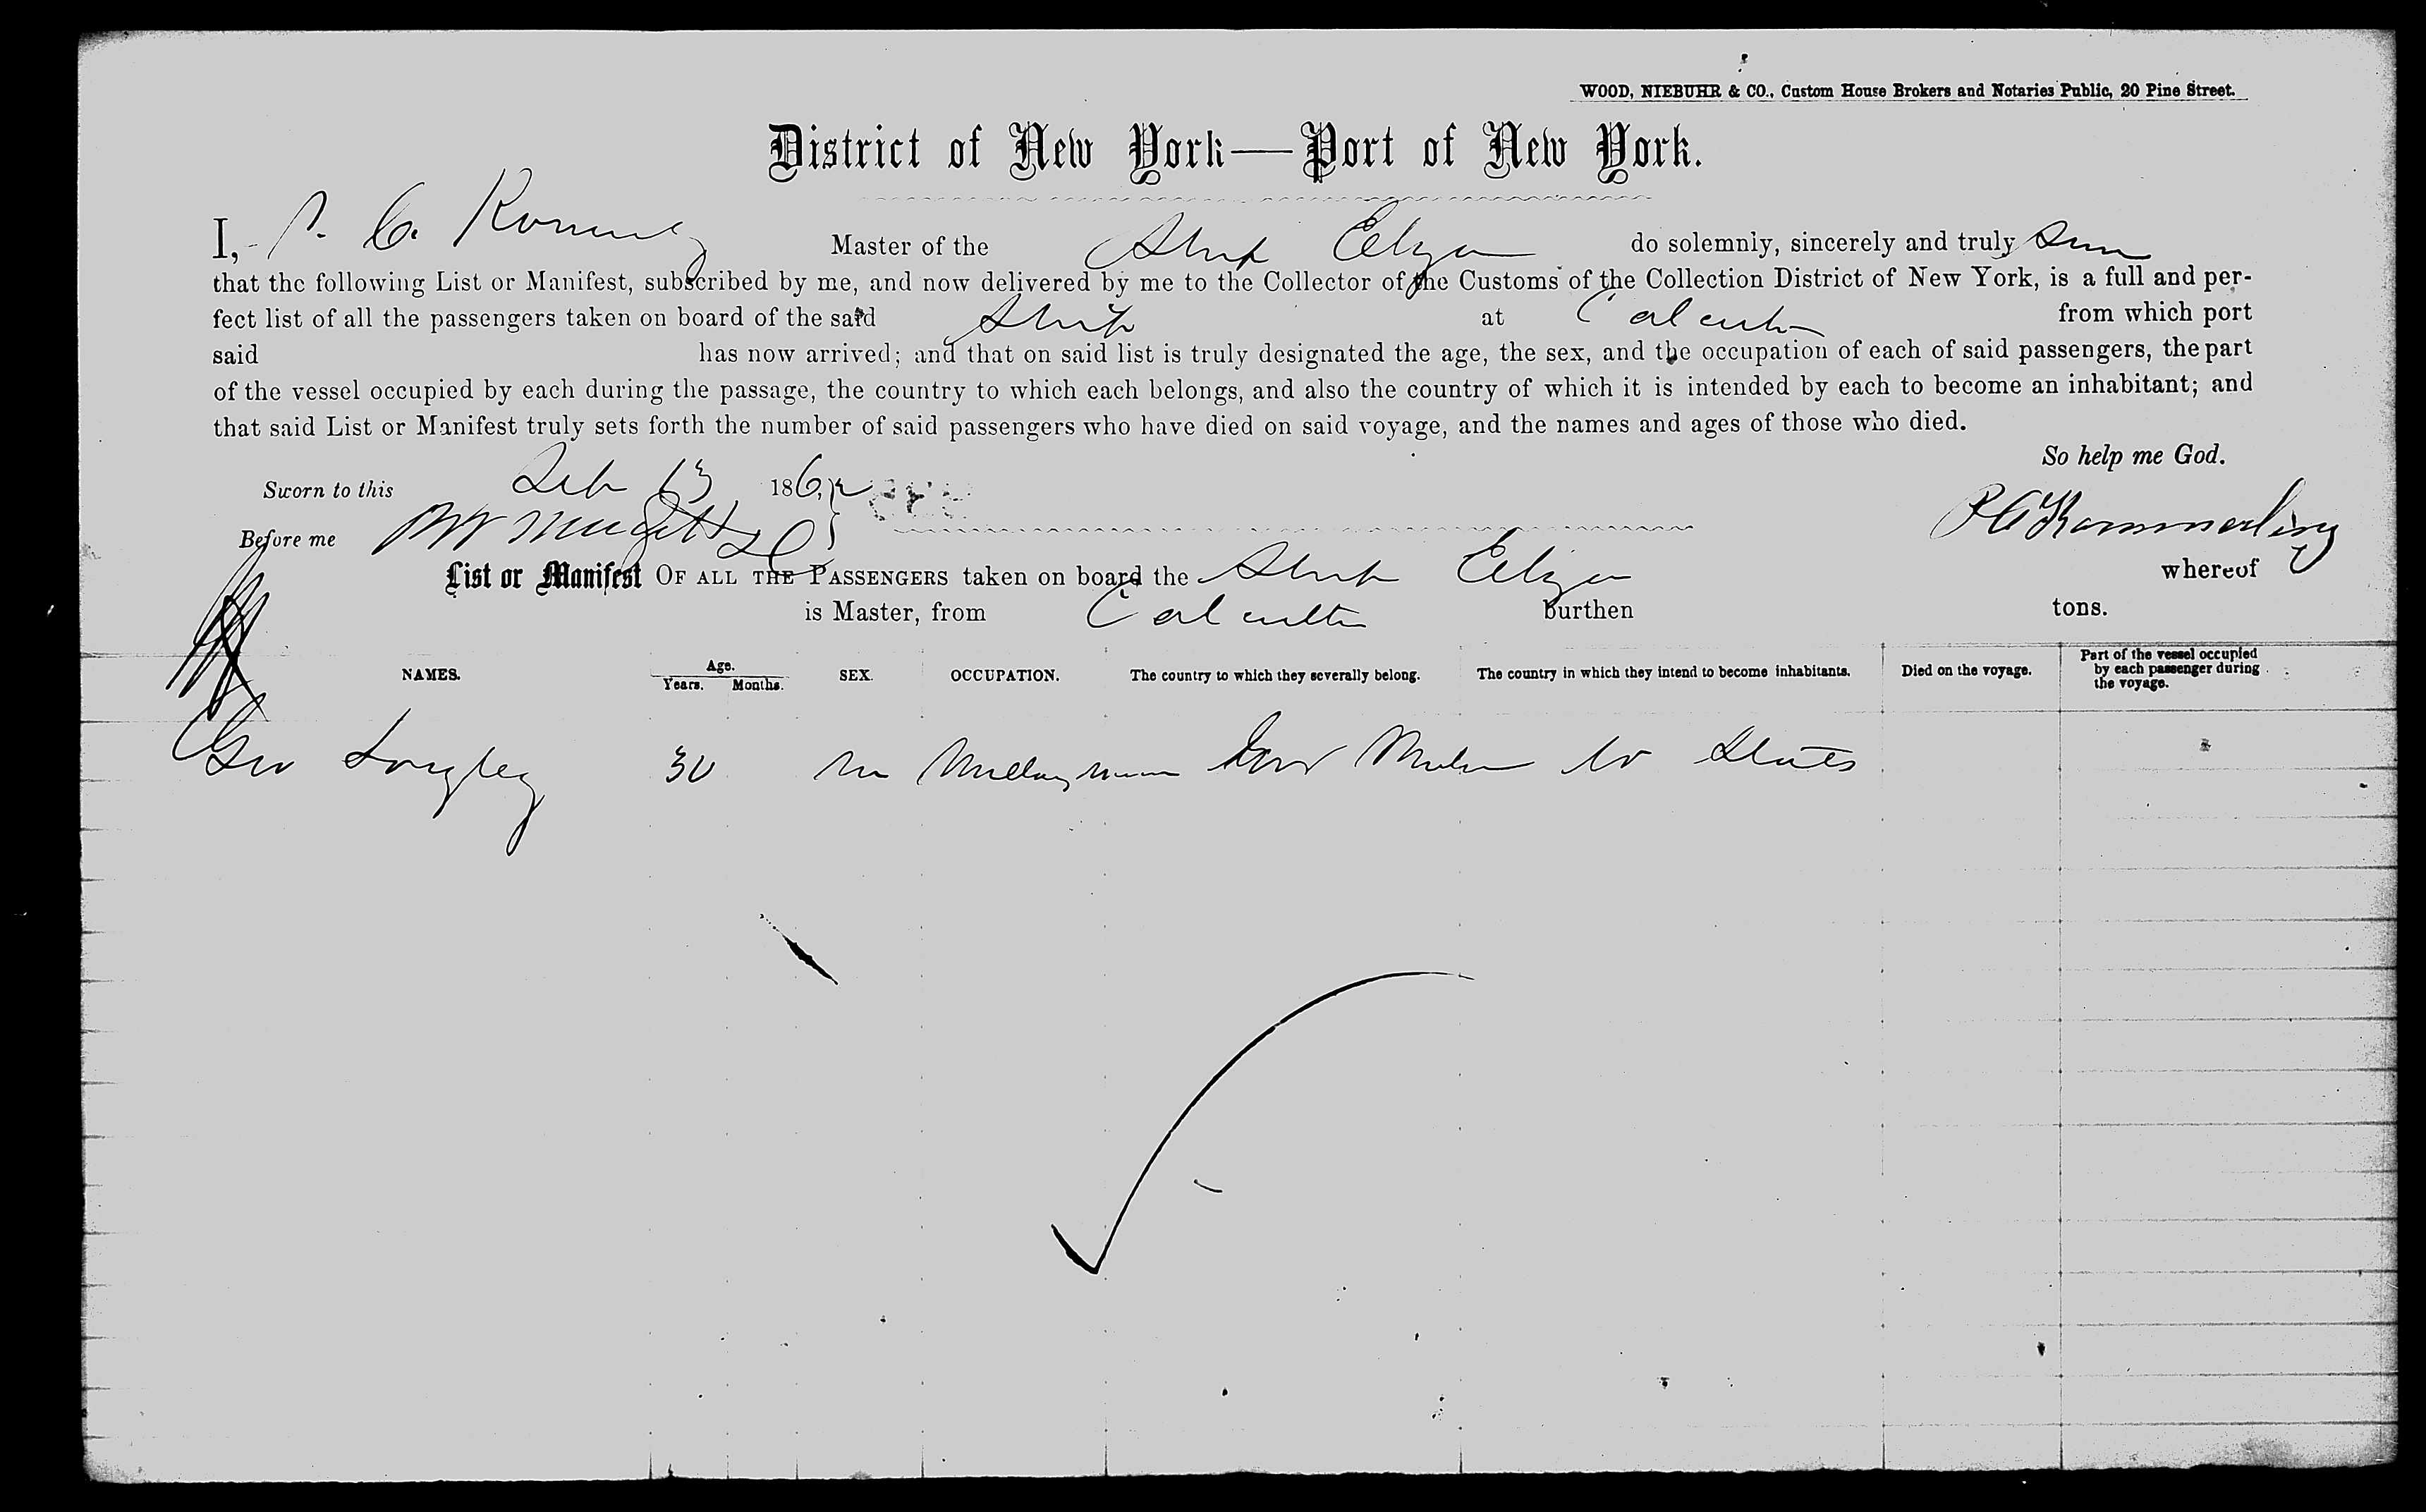 WOOD, NIEBUHR & CO., Custom House Brokers and Notaries Public, 20 Pine Street.
District of New York—Port of New York.
I, P. C. Master of the Ship Eliza do solemnly, sincerely and truly
that the following List or Manifest, subscribed by me, and now delivered by me to the Collector of the Customs of the Collection District of New York, is a full and per-
fect list of all the passengers taken on board of the said Ship at Calcutta from which port
said has now arrived; and that on said list is truly designated the age, the sex, and the occupation of each of said passengers, the part
of the vessel occupied by each during the passage, the country to which each belongs, and also the country of which it is intended by each to become an inhabitant; and
that said List or Manifest truly sets forth the number of said passengers who have died on said voyage, and the names and ages of those who died.
So help me God.
Sworn to this Feb 13 1862
Before me
List or Manifest OF ALL THE PASSENGERS taken on board the Ship Eliza whereof
is Master, from Calcutta burthen tons.
NAMES. Age. Years. Months. SEX. OCCUPATION. The country to which they severally belong. The country in which they intend to become inhabitants. Died on the voyage. Part of the vessel occupied by each passenger during the voyage.
Geo Longley 30 m States